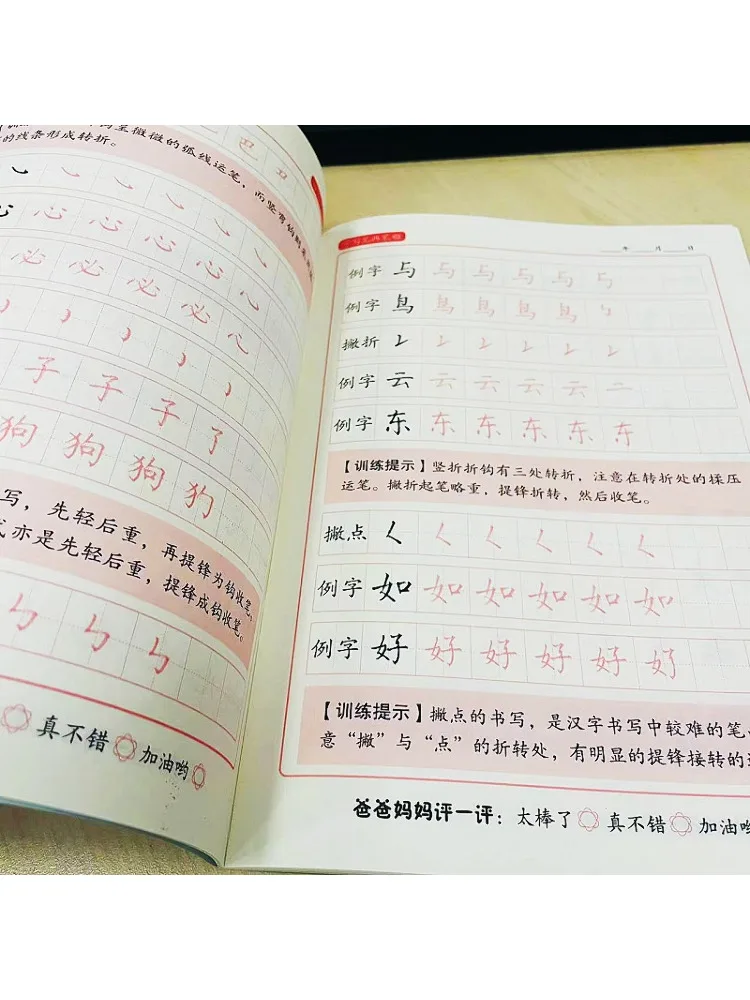 微微的弧线运笔，而竖弯钩则
的线条形成转折。
心 心 心 心 心 心
必 必 必 必 心
子 子 子 了
狗 狗 狗 犳
写，先轻后重，再提锋为钩收笔。
式亦是先轻后重，提锋成钩收笔。
ㄣ ㄣ ㄣ
真不错 加油哟
年 月 日
例字 与 与 与 与 与
例字 鸟 鸟 鸟 鸟
撇折
例字 云 云 云 云 云 二
例字 东 东 东 东 东 东
【训练提示】竖折折钩有三处转折，注意在转折处的揉压
运笔。撇折起笔略重，提锋折转，然后收笔。
撇点 く く く く く く
例字 如 如 如 如 如 如
例字 好 好 好 好 好
【训练提示】撇点的书写，是汉字书写中较难的笔
意“撇”与“点”的折转处，有明显的提锋接转的
爸爸妈妈评一评：太棒了 真不错 加油哟